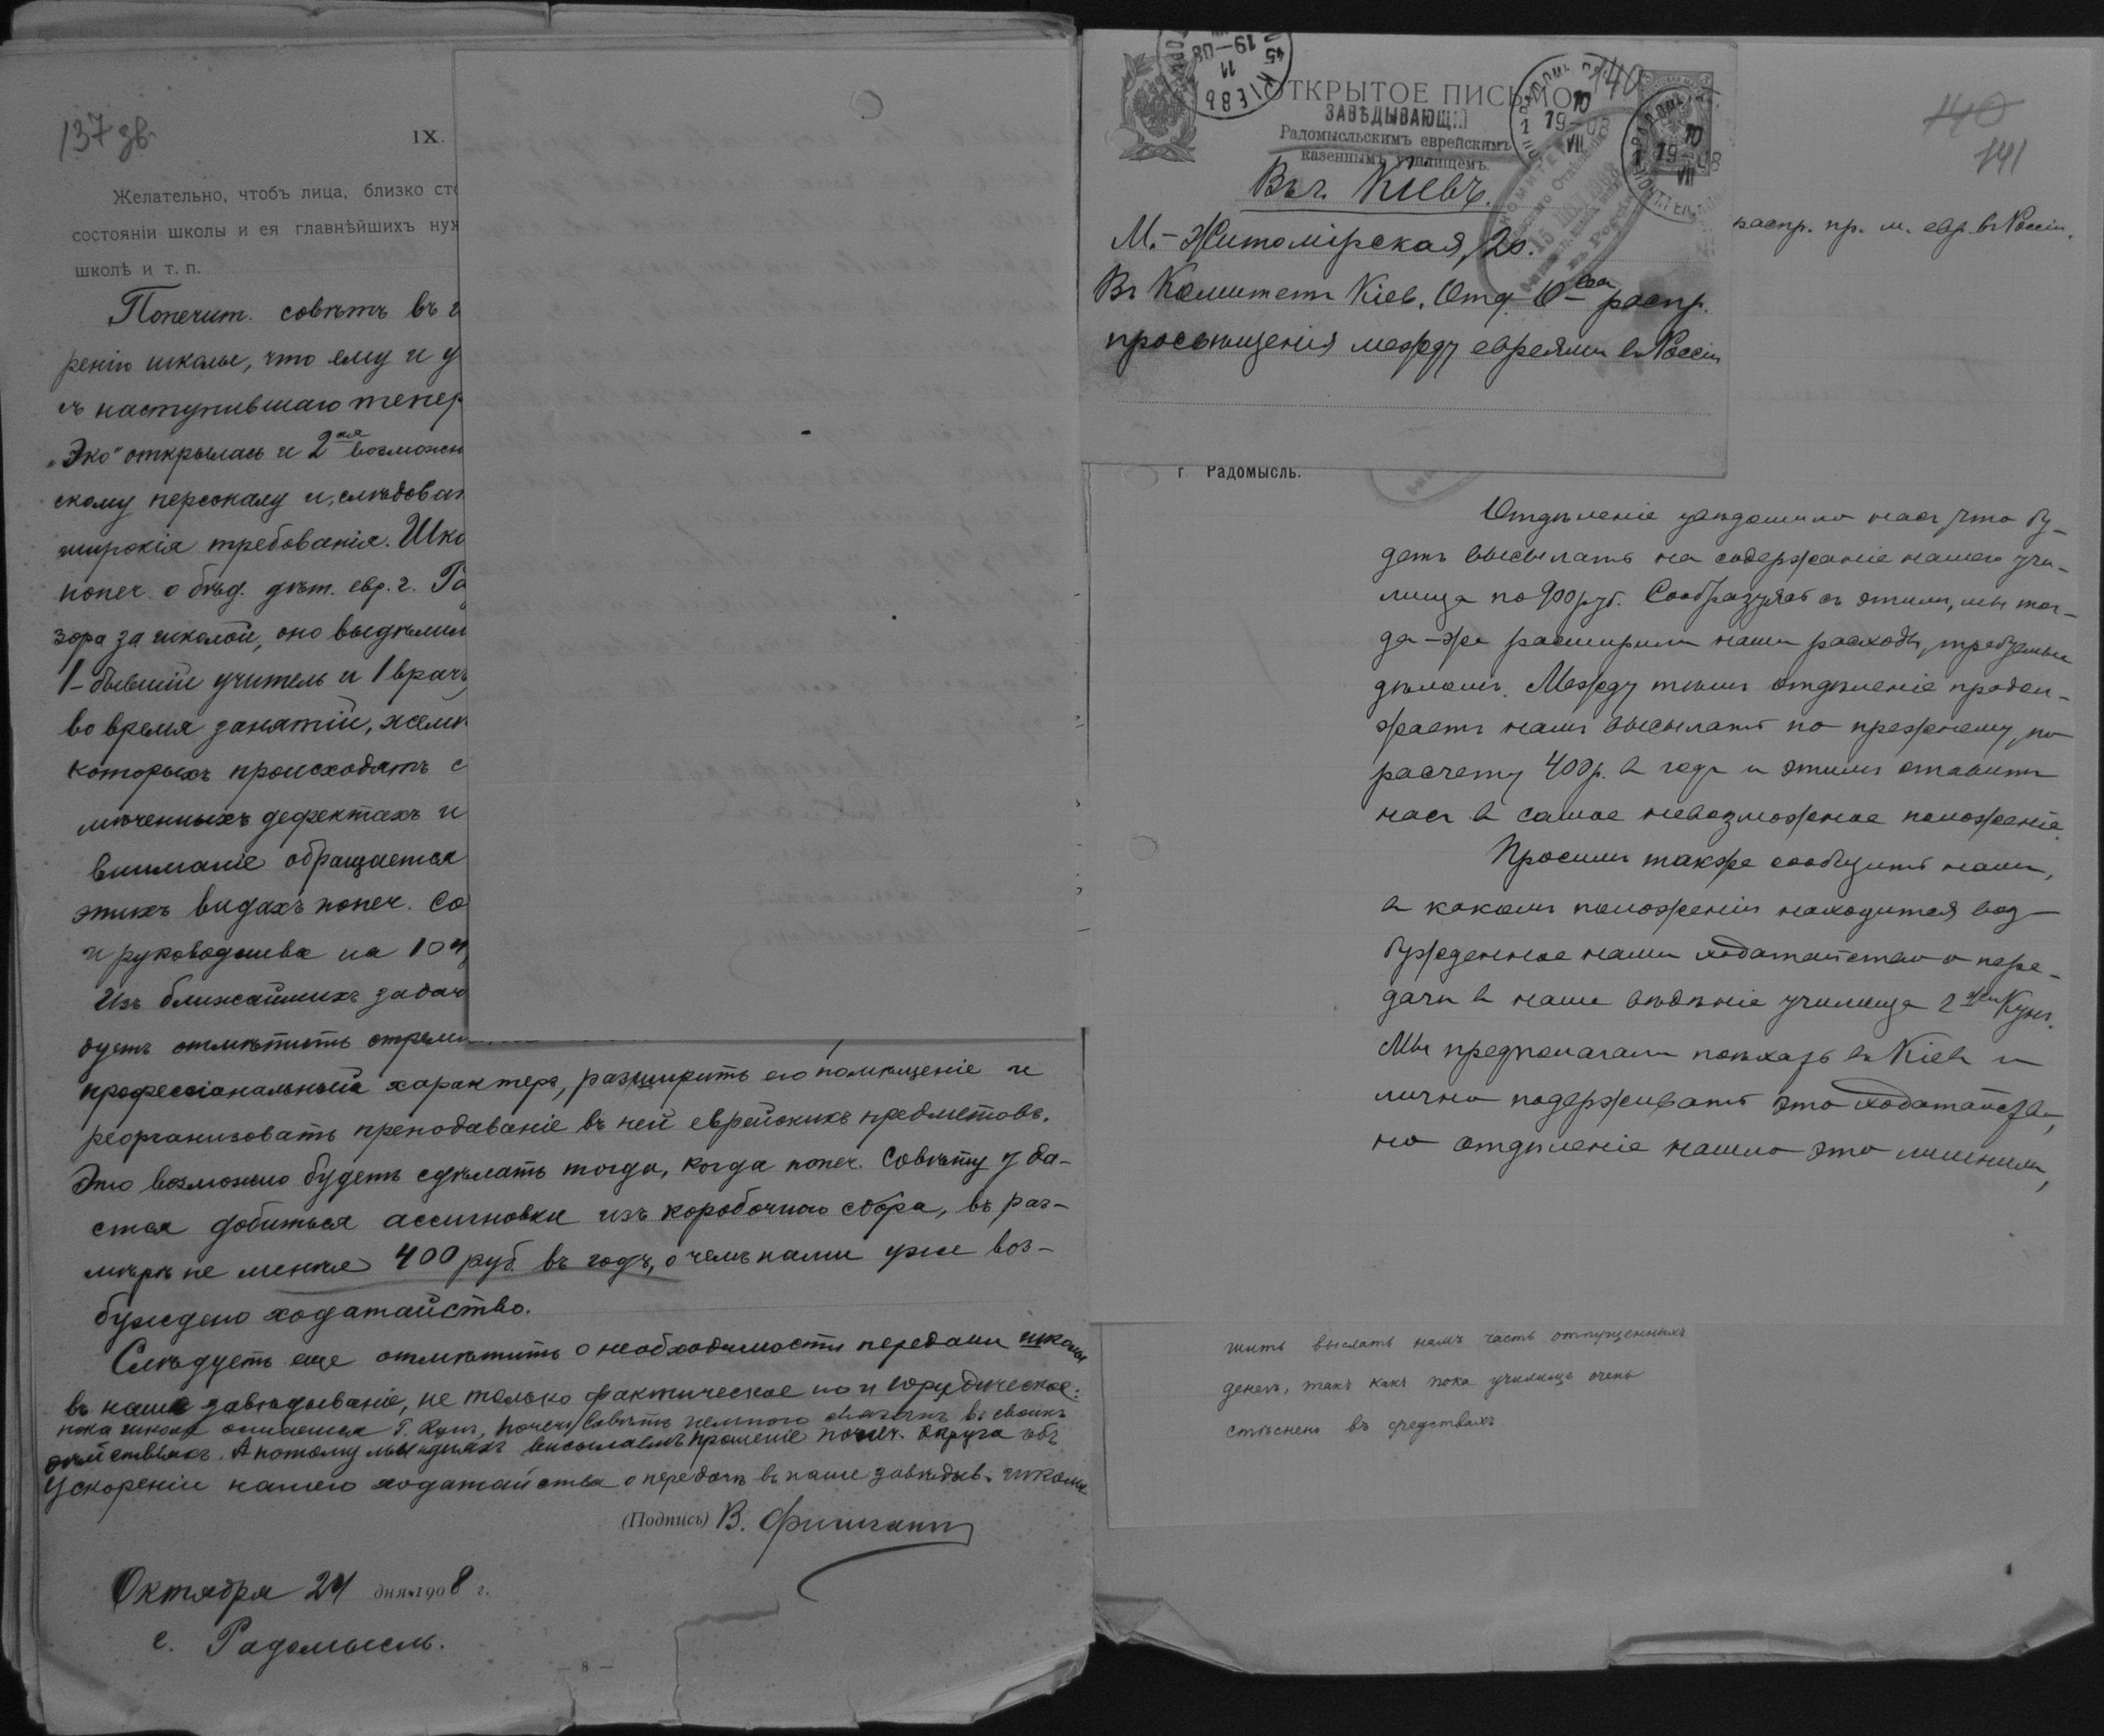 137 зв.
IX.
Желательно, чтобъ лица, близко сто
состоянiи школы и ея главнѣйшихъ нуж
школѣ и т. п.
Попечит. совѣтъ въ г
ренiю школы, что ему и у
съ наступившаго тепер
„Эко" открылась и 2ая возможн
скому персоналу и, слѣдоват
широкiя требованiя. Шко
попеч. о бѣд. дѣт. евр. г. Ра
зора за школой, оно выдѣлил
1 - бывшiй учитель и 1 врачъ
во время занятiй,
которыхъ происходятъ с
мѣченныхъ дефектахъ и
вниманiе обращается
этихъ видахъ попеч. Со
и руководства на 10
Изъ ближайшихъ задач
дуетъ отмѣтить стремл
профессiональный характеръ, разширить его помѣщенiе и
реорганизовать преподаванiе въ ней еврейскихъ предметовъ.
Это возможно будетъ сдѣлать тогда, когда попеч. Совѣту уда-
стся добиться ассигновки изъ коробочнаго сбора, въ раз-
мѣрѣ не менѣе 400 руб. въ годъ, о чемъ нами уже воз-
буждено ходатайство.
Слѣдуетъ еще отмѣтить о необходимости передачи школы
въ наше завѣдыванiе, не только фактическое но и юридическое:
пока школа Г. Кун, попеч. Совѣтъ немного связанъ въ своихъ
дѣйствiяхъ. А потому мы на дняхъ высылаемъ прошенiе попеч. Округа объ
ускоренiи нашего ходатайства о передачѣ въ наше завѣдыв. школы
(Подпись) В. Фишманъ
Октября 24 дня 1908 г.
г. Радомысль.
— 8 —
КIЕВЪ
11
19-08
45
ОТКРЫТОЕ ПИСЬМО
140
ЗАВѢДЫВАЮЩIЙ
Радомысльскимъ еврейскимъ
казеннымъ училищемъ.
10
19-08
VII
10
19-08
VII
Въ г. Кiевъ.
М.-Житомiрская, 20.
Въ Комитетъ Кiев. Отд. О-ва распр.
просвѣщенiя между евреями въ Россiи
140
141
распр. пр. м. евр. въ Россiи.
г. Радомысль.
Отдѣленiе увѣдомило насъ, что бу-
детъ высылать на содержанiе нашего учи-
лища по 900 руб. Сообразуясь съ этимъ, мы тог-
да-же расширили наши расходы, требуемые
дѣломъ. Между тѣмъ отдѣленiе продол-
жаетъ намъ высылать по прежнему, по
расчету 400 р. въ годъ и этимъ ставитъ
насъ въ самое невозможное положенiе.
Просимъ также сообщить намъ,
въ какомъ положенiи находится воз-
бужденное нами ходатайство о пере-
дачѣ въ наше вѣдѣнiе училища г-жи Кунъ.
Мы предполагали поѣхать въ Кiевъ и
лично подерживать это ходатайство,
но отдѣленiе нашло это лишнимъ,
жить выслать намъ часть отпущенныхъ
денегъ, такъ какъ пока училище очень
стѣснено въ средствахъ